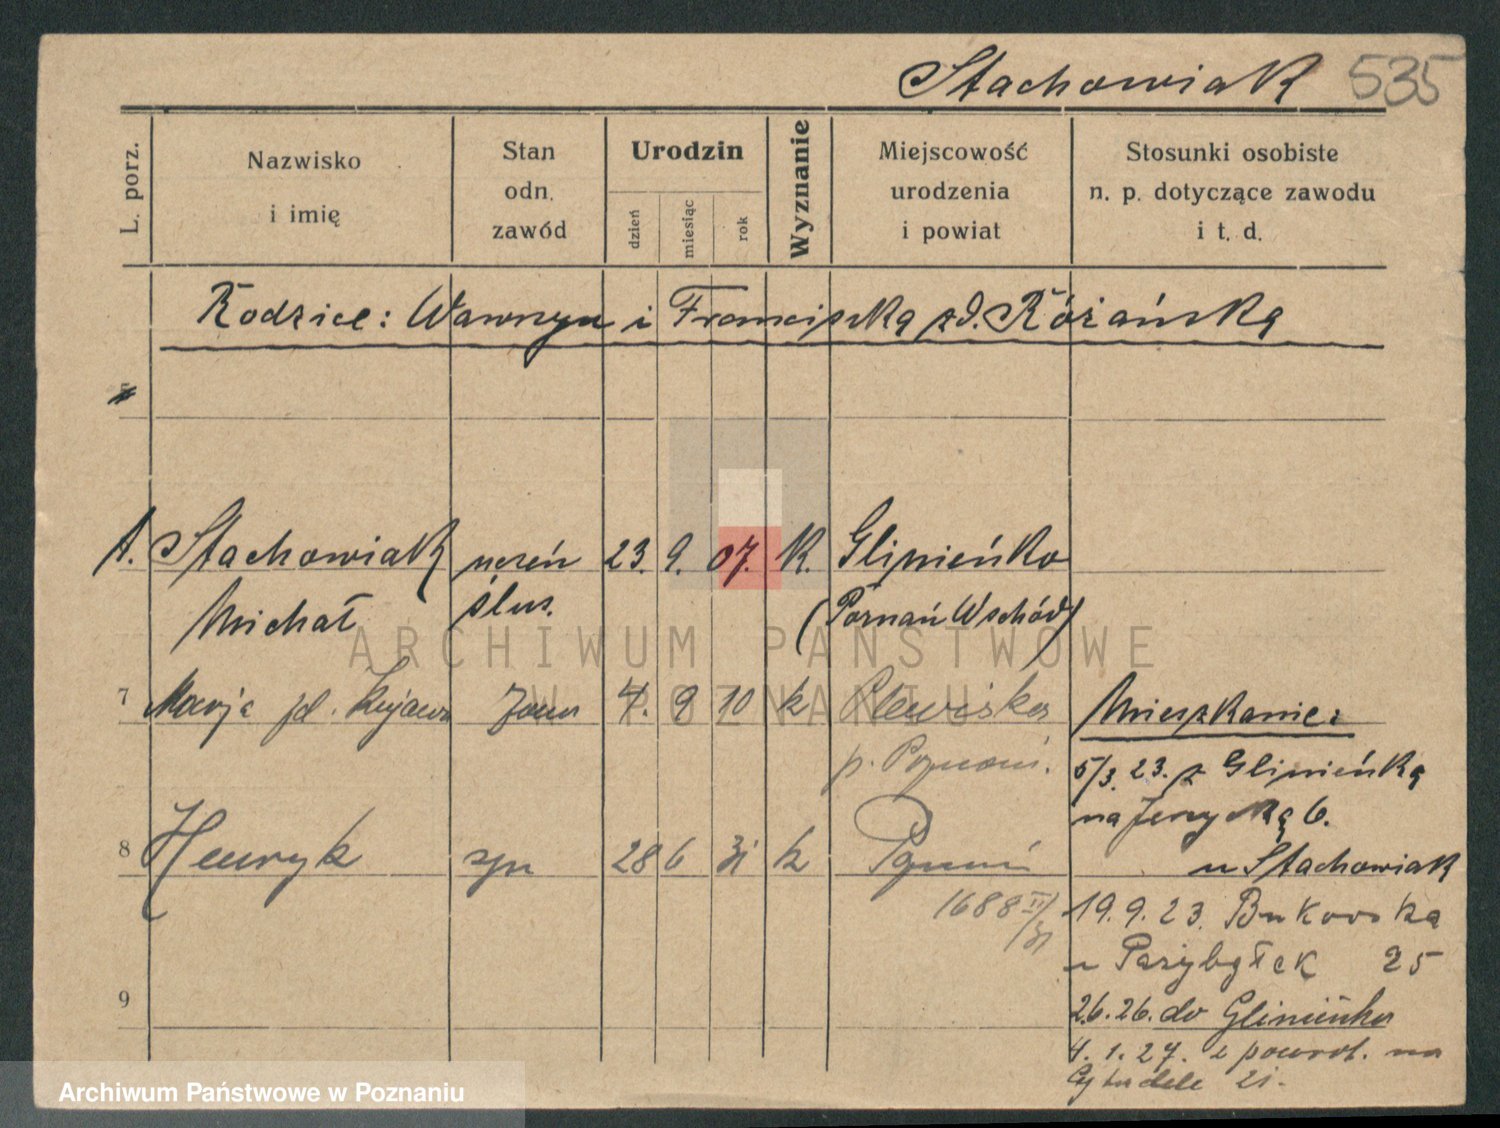 Stachowiak 535
L. porz.
Nazwisko
i imię
Stan
odn.
zawód
Urodzin
dzień
miesiąc
rok
Wyznanie
Miejscowość
urodzenia
i powiat
Stosunki osobiste
n. p. dotyczące zawodu
i t. d.
Rodzice: Wawrzyn i Franciszka zd. Różańska
1. Stachowiak uczeń 23. 9. 07. K. Glinieńko
Michał ślus. (Poznań Wschód)
7 Marja zd. Kujawa żona 4. 9 10 k Plewiska
p. Poznań.
8 Henryk syn 28 6 31 k Poznań
1688 II/31
9
Mieszkanie:
5/3. 23. z Glinieńka
na 6.
u Stachowiak
19. 9. 23. Bukowska
u Przybyłek 25
26. 26. do Glinieńka
4. 1. 27. z powrot. na
Cytadele 21.
ARCHIWUM PAŃSTWOWE
W POZNANIU
Archiwum Państwowe w Poznaniu